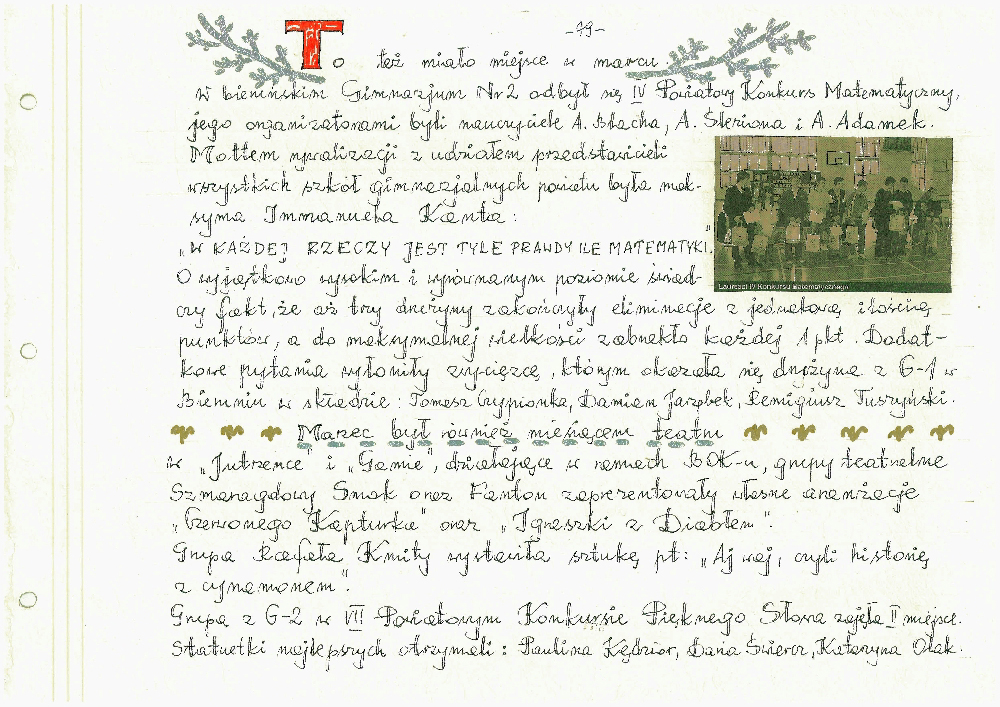 -49-
To też miało miejsce w marcu.
w bieruńskim Gimnazjum Nr 2 odbył się IV Powiatowy Konkurs Matematyczny,
jego organizatorami byli nauczyciele A. Blacha, A. Ścieriona i A. Adamek.
Mottem rywalizacji z udziałem przedstawicieli
wszystkich szkół gimnazjalnych powiatu była mak-
syma Immanuela Kanta:
„W KAŻDEJ RZECZY JEST TYLE PRAWDY ILE MATEMATYKI."
O wyjątkowo wysokim i wyrównanym poziomie świad-
czy fakt, że aż trzy drużyny zakończyły eliminacje z jednakową ilością
punktów, a do maksymalnej wielkości zabrakło każdej 1 pkt. Dodat-
kowe pytania wyłoniły zwycięzcę, którym okazała się drużyna z G-1 w
Bieruniu w składzie: Tomasz Czypionka, Damian Jarząbek, Remigiusz Tuszyński.
Laureaci IV Konkursu Matematycznego
Marzec był również miesiącem teatru
w „Jutrzence" i „Gamie", działające w ramach BOK-u, grupy teatralne
Szmaragdowy Smok oraz Fantom zaprezentowały własne aranżacje
„Czerwonego Kapturka" oraz „Igraszki z Diabłem".
Grupa Rafała Kmity wystawiła sztukę pt: „Aj waj, czyli historię
z cynamonem".
Grupa z G-2 w VII Powiatowym Konkursie Pięknego Słowa zajęła II miejsce.
Statuetki najlepszych otrzymali: Paulina Kędzior, Daria Świercz, Katarzyna Olak.